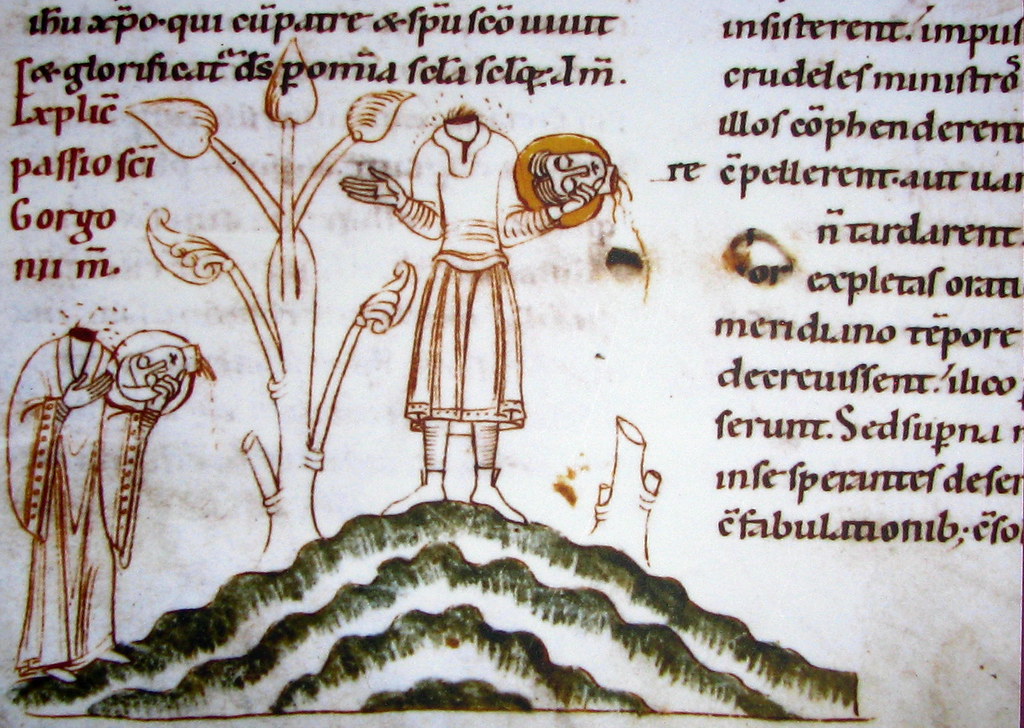 ihu xp̄o· qui cū patre & sp̄u scō uiuit
& glorificat̄ ds̄ p om̄ia scl̄a scl̄oꝝ. Am̄.
Explic̄
passio sc̄i
Gorgo
nii m̄.
insisterent. impus
crudeles ministrō
illos cōphenderent
re c̄pellerent. aut uar
n̄ tardarent.
or expletas orati
meridiano tēpore
decreuissent. ilico
serunt. Sed sup̄na
inse sperantes deser
c̄fabulationib; c̄so